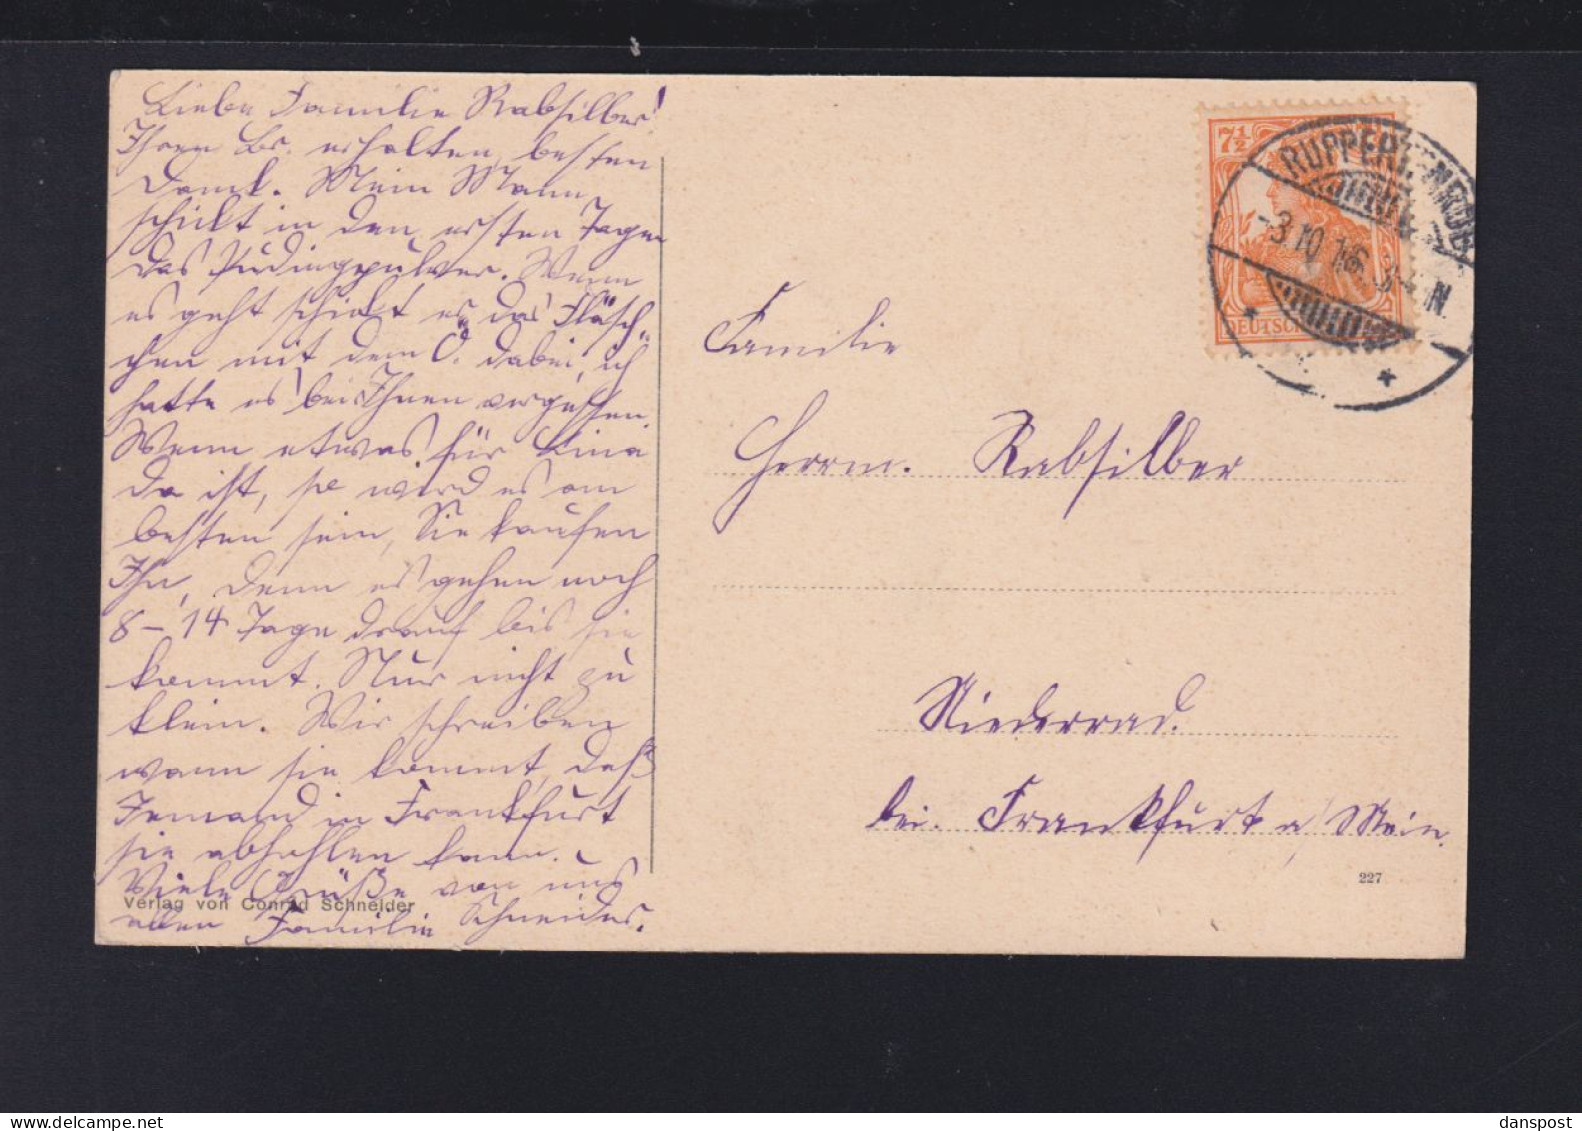 Liebe Familie Rabsilber!
Ihren Br. erhalten, besten
Dank. Mein Mann
schickt in den ersten Tagen
das Pudingpulver. Wenn
es geht schickt es das Fläsch-
chen mit dem Ö. dabei, ich
hatte es bei Ihnen vergessen.
Wenn etwas für Lina
da ist, so wird es am
besten sein, Sie kaufen
Ihn, denn es gehen noch
8-14 Tage drauf bis sie
kommt. Nur nicht zu
klein. Wir schreiben
wann sie kommt, daß
Jemand in Frankfurt
sie abhohlen kann.
Viele Grüße von uns
allen Familie Schneider.
Verlag von Conrad Schneider
7½
DEUTSCHES
RUPPERTENROD
-3.10.16. 3-4 N.
* *
Familie
Herrm. Rabsilber
Niederrad.
bei. Frankfurt a/Mein.
227
danspost